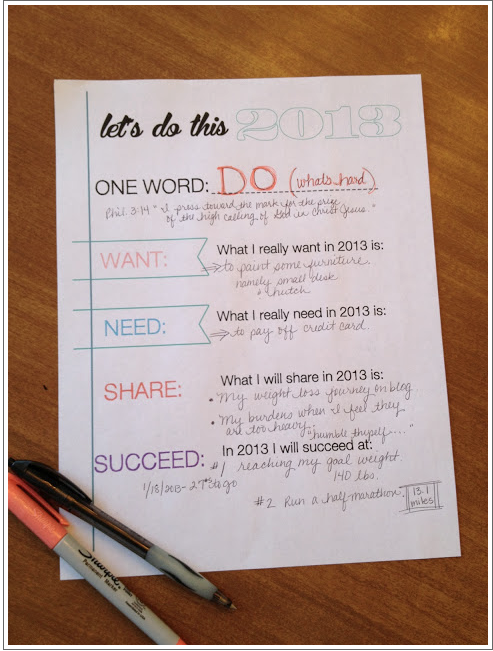 let's do this 2013
ONE WORD: DO (what's hard)
Phil. 3:14 "I press toward the mark for the prize
of the high calling of God in Christ Jesus."
WANT:
What I really want in 2013 is:
to paint some furniture.
namely small disk
& hutch
NEED:
What I really need in 2013 is:
to pay off credit card.
SHARE:
What I will share in 2013 is:
• My weight loss journey on blog
• My burdens when I feel they
are too heavy.
"humble thyself...."
SUCCEED:
In 2013 I will succeed at:
#1 reaching my goal weight
140 lbs.
1/18/2013 - 27#s to go
#2 Run a half-marathon.
13.1
miles
Sharpie
Permanent Marker